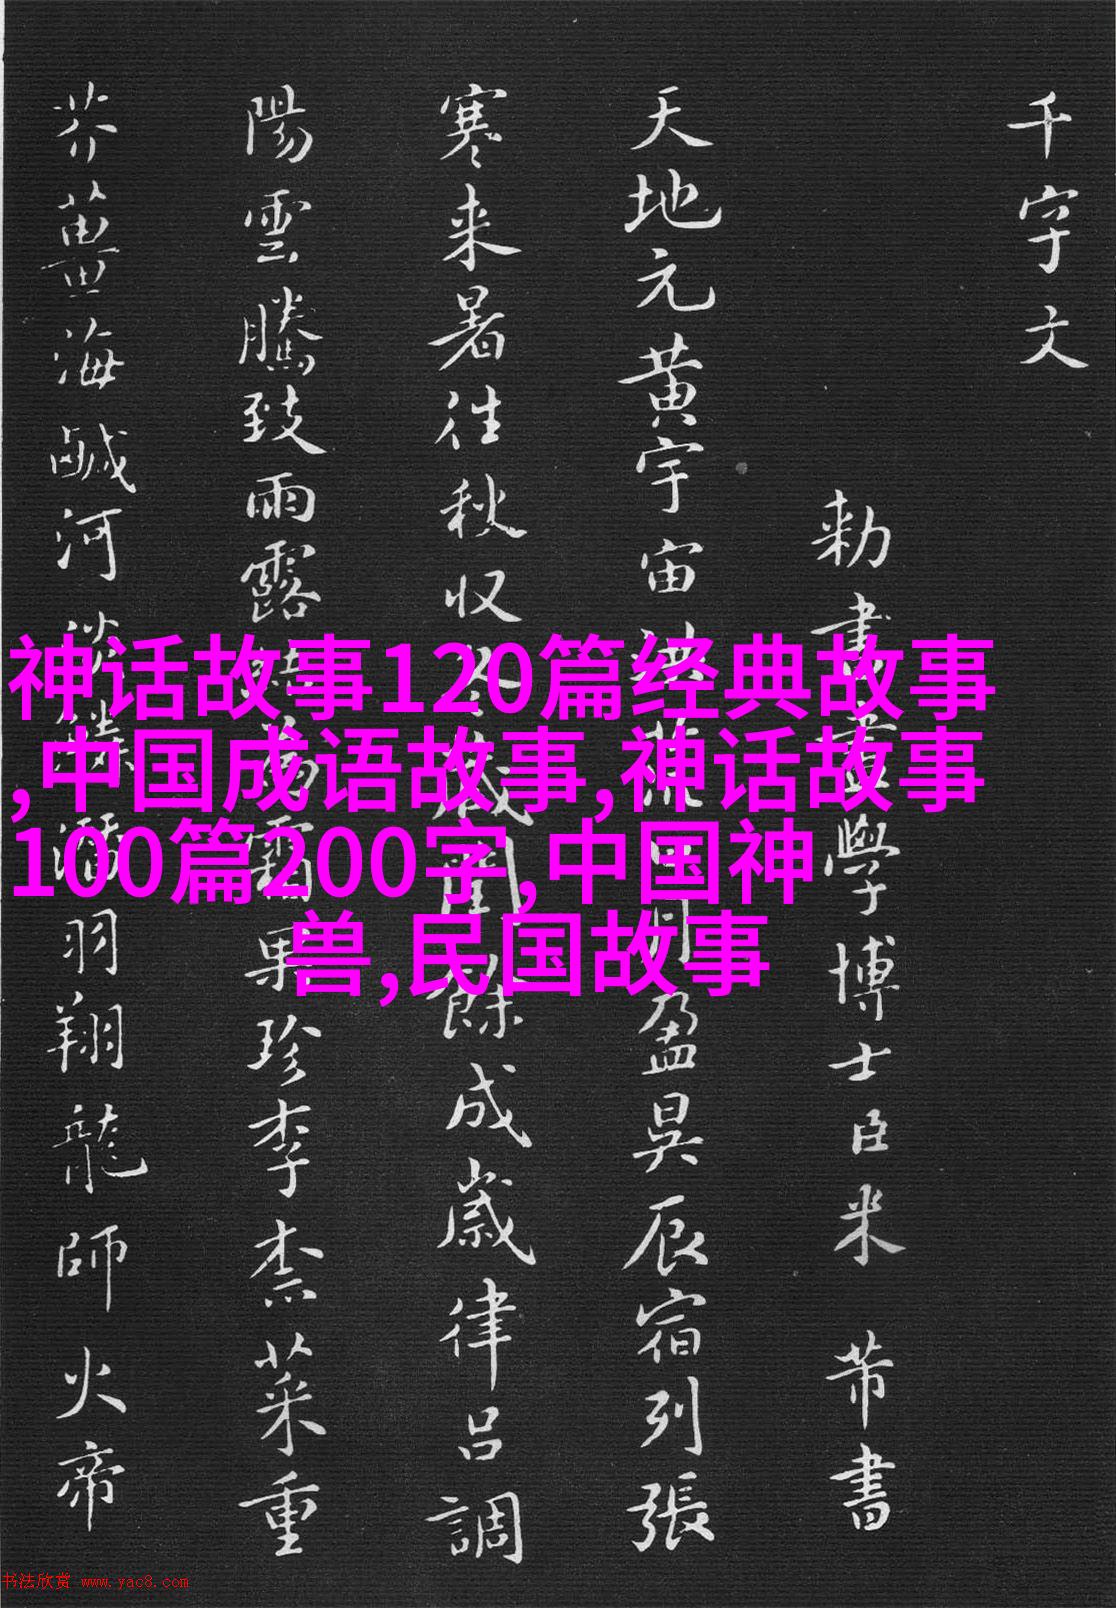 千字文
勅書畫學博士臣米芾書
天地元黄宇宙洪荒日月盈昃辰宿列張
寒来暑往秋収冬藏閏餘成歲律呂調
陽雲騰致雨露結為霜果珍李柰菜重
芥薑海鹹河淡鱗潛羽翔龍師火帝
神话故事120篇经典故事
,中国成语故事,神话故事
100篇200字,中国神
兽,民国故事
书法欣赏 www.yac8.com